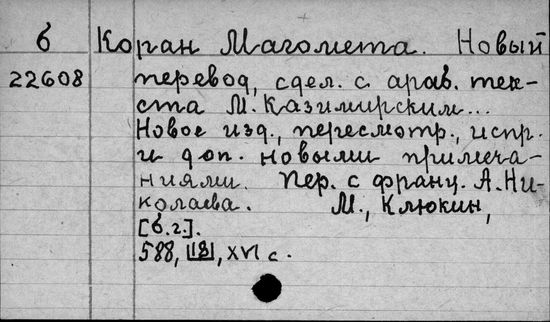 б Коран Магомета. Новый
22608 перевод, сдел. с араб. тек-
ста М. Казимирским...
Новое изд., пересмотр., испр.
и доп. новыми примеча-
ниями. Пер. с франц. А. Ни-
колаева. М., Клюкин,
[б.г.].
588, XVI с.